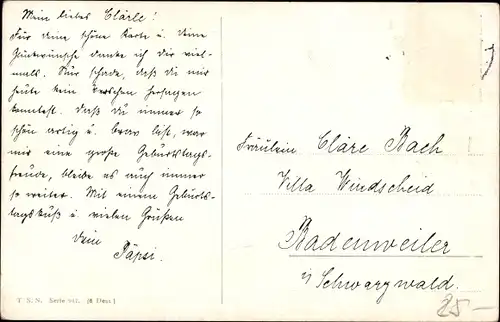 Mein liebes Clärle!
Für deine schöne Karte u. deine
Glückwünsche danke ich dir viel-
mals. Nur schade, daß du mir
heute kein Verschen hersagen
konntest. Daß du immer so
schön artig u. brav bist, war
mir eine große Geburtstags-
freude, bleibe es auch immer
so weiter. Mit einem Geburts-
tagskuß u. vielen Grüßen
dein
Papsi.
Fräulein Cläre Bach
Villa Windscheid
Badenweiler
i/ Schwarzwald.
T. S. N. Serie
25-